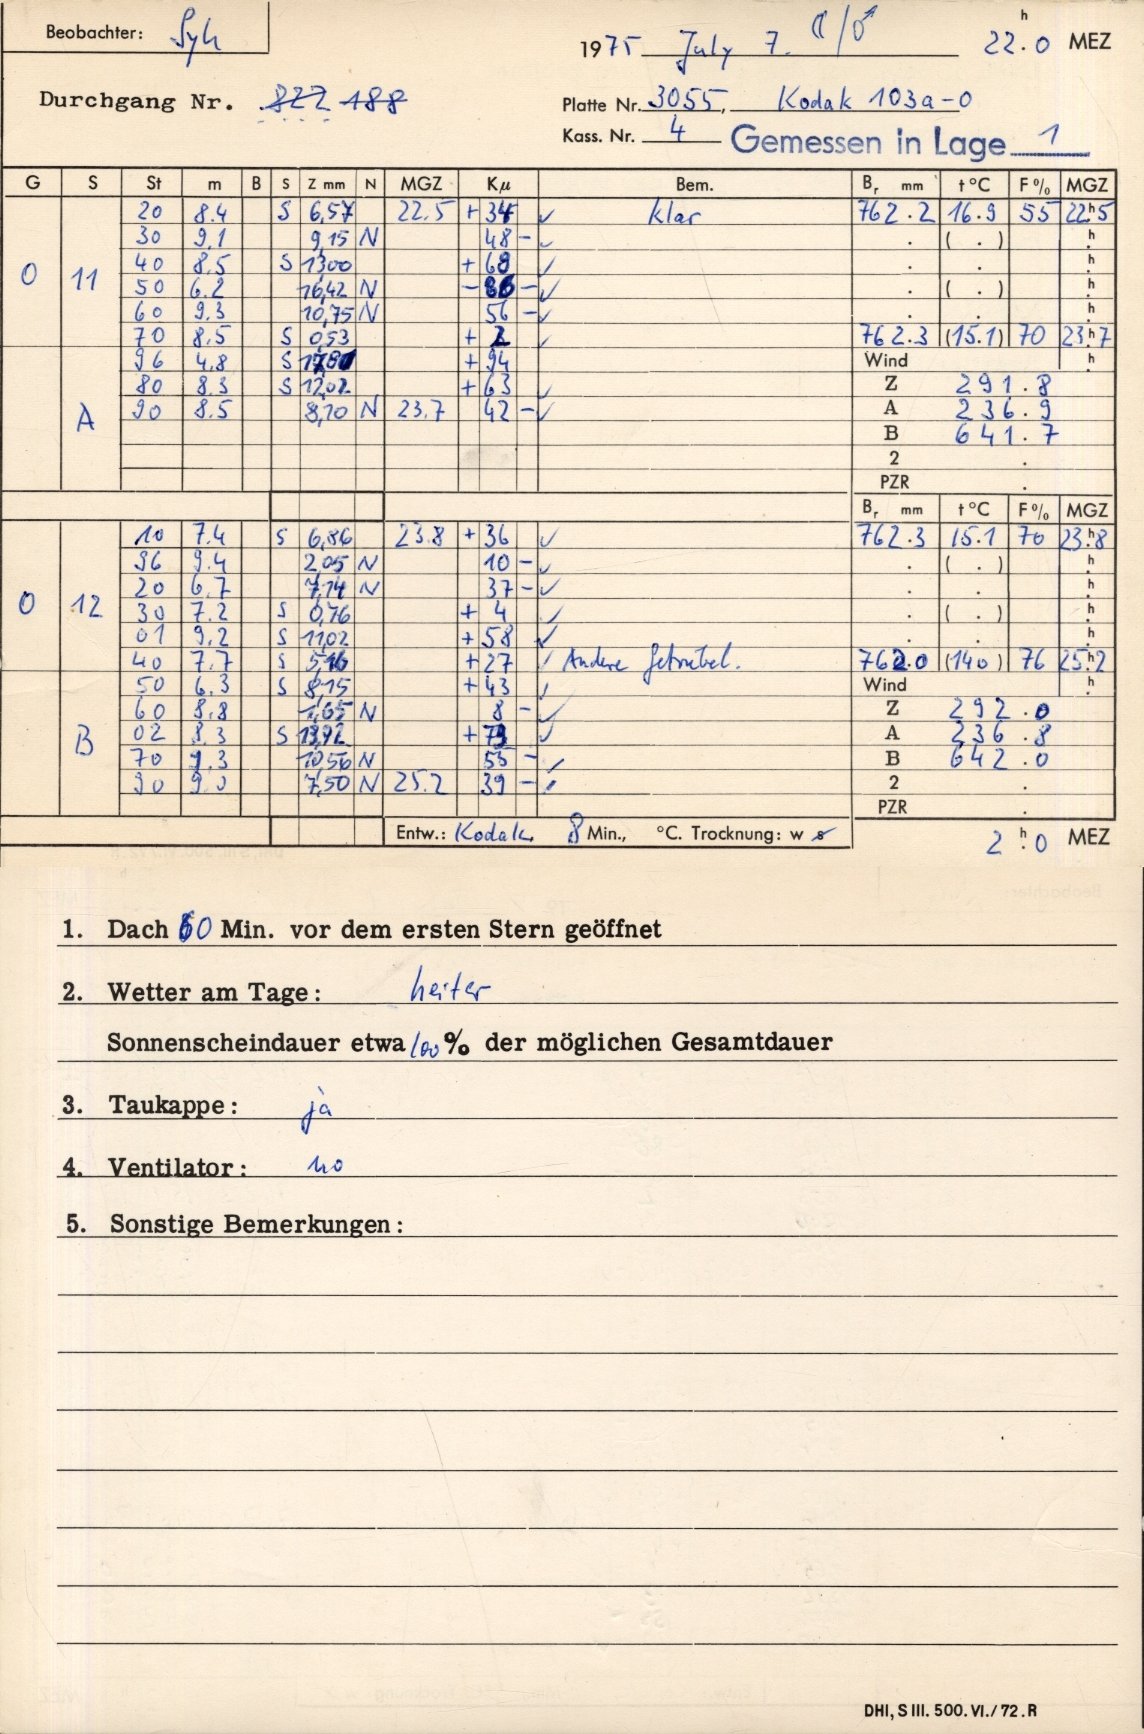 Beobachter: Syh
1975 July 7. ☾/♂ 22.h0 MEZ
Durchgang Nr. 822 188
Platte Nr. 3055, Kodak 103a-0
Kass. Nr. 4 Gemessen in Lage 1
G S St m B S Z mm N MGZ Kμ Bem. Br mm t °C F % MGZ
20 8.4 S 6,57 22.5 +34 ✓ klar 762.2 16.9 55 22h5
30 9.1 9,15 N 48 - ✓ . ( . ) h.
0 11 40 8.5 S 13,00 +69 ✓ . . h.
50 6.2 16,42 N -86 - ✓ . ( . ) h.
60 9.3 10,75 N 56 - ✓ . . h.
70 8.5 S 0,53 +2 ✓ 762.3 (15.1) 70 23h7
96 4.8 S +94 Wind h.
80 8.3 S 12,02 +63 ✓ Z 291.8
A 90 8.5 8,10 N 23.7 42 - ✓ A 236.9
B 641.7
2 .
PZR .
Br mm t °C F % MGZ
10 7.4 S 6,86 23.8 +36 ✓ 762.3 15.1 70 23h8
96 9.4 2,05 N 10 - ✓ . ( . ) h.
20 6.7 7,14 N 37 - ✓ . . h.
0 12 30 7.2 S 0,76 +4 ✓ . ( . ) h.
01 9.2 S 11,02 +58 ✓ . . h.
40 7.7 S 5,16 +27 ✓ Andere 762.0 (14.0) 76 25h2
50 6.3 S 8,15 +43 ✓ Wind h.
60 8.8 1,65 N 8 - ✓ Z 292.0
B 02 8.3 S 13,92 +73 ✓ A 236.8
70 9.3 10,56 N 55 - ✓ B 642.0
90 9.0 7,50 N 25.2 39 - ✓ 2 .
PZR .
Entw.: Kodak 8 Min., °C. Trocknung: w s 2h.0 MEZ
1. Dach 60 Min. vor dem ersten Stern geöffnet
2. Wetter am Tage: heiter
Sonnenscheindauer etwa 100 % der möglichen Gesamtdauer
3. Taukappe: ja
4. Ventilator: no
5. Sonstige Bemerkungen:
DHI, S III. 500. VI./72. R